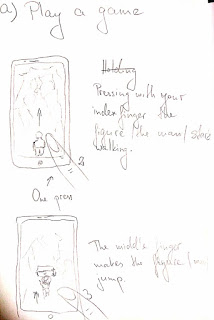 a) Play a game
Holding
Pressing with your
index finger the
figure / the man / starts
walking.
2
One press
The middle finger
makes the figure / man
jump.
3